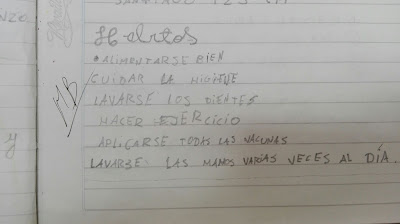 SANTIAGO 123
NZO
Habitos
• ALIMENTARSE BIEN
CUIDAR LA HIGIENE
LAVARSE LOS DIENTES
HACER EJERCICIO
APLICARSE TODAS LAS VACUNAS
LAVARSE LAS MANOS VARIAS VECES AL DÍA.
MB
y